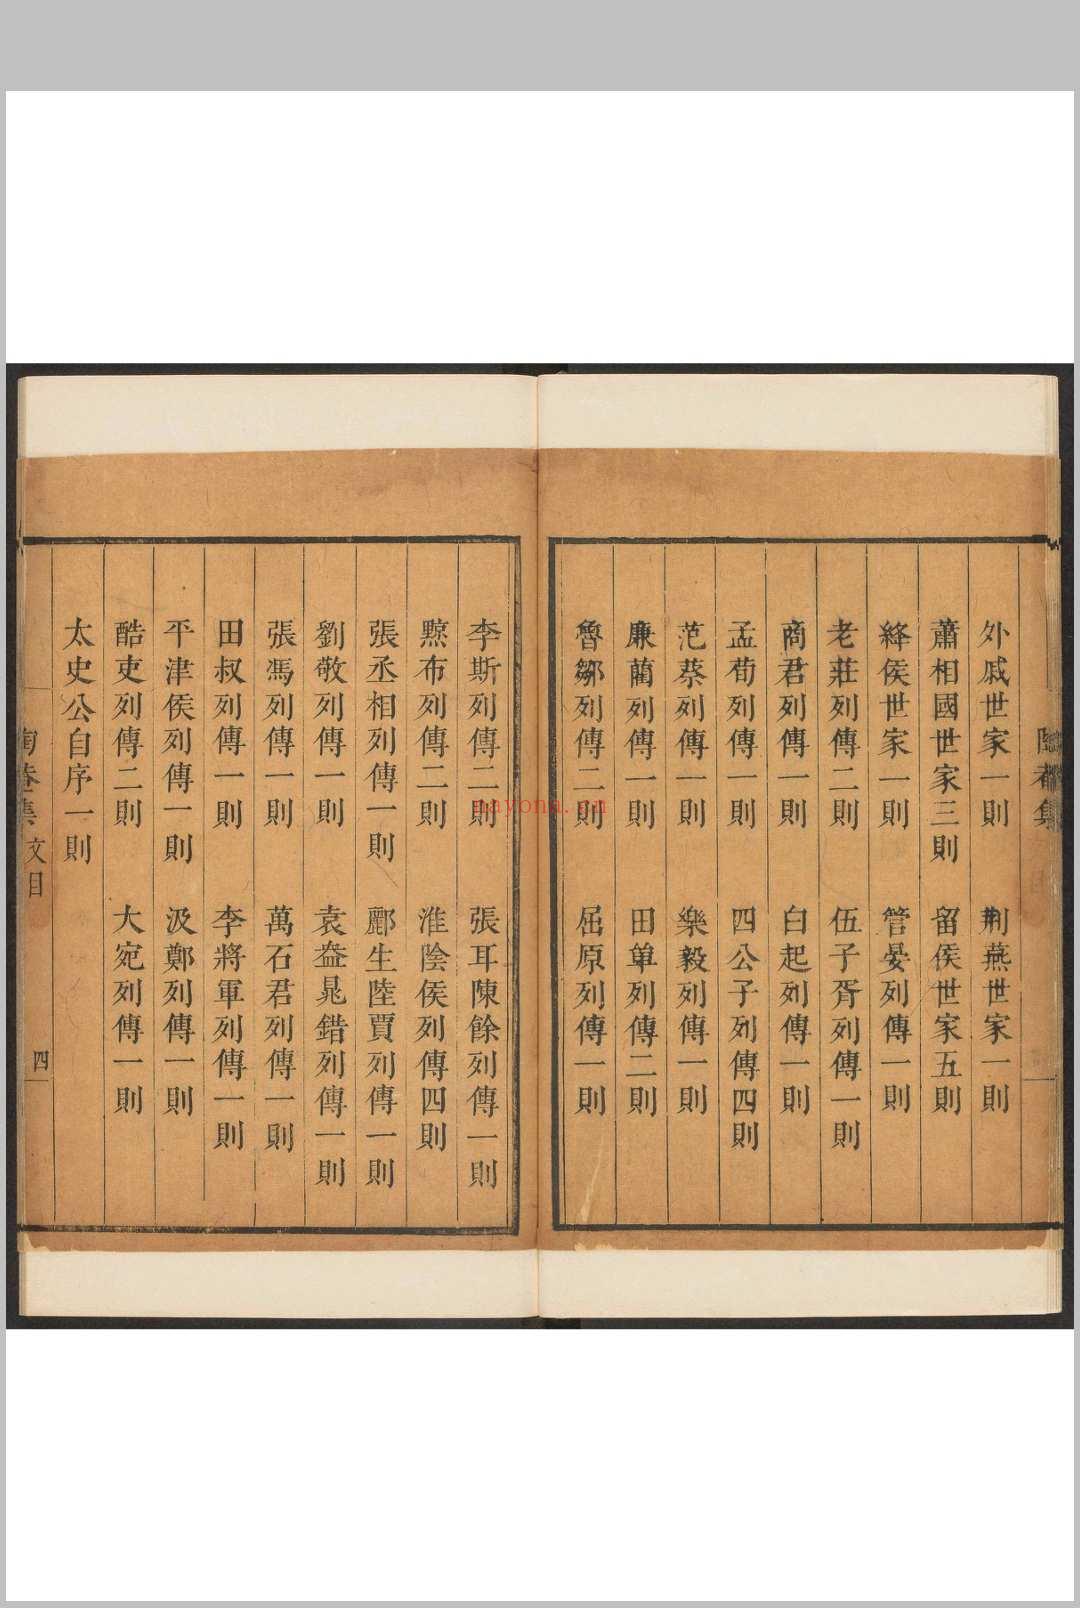 外戚世家一則　荆燕世家一則
蕭相國世家三則　留侯世家五則
絳侯世家一則　管晏列傳一則
老莊列傳二則　伍子胥列傳一則
商君列傳一則　白起列傳一則
孟荀列傳一則　四公子列傳四則
范蔡列傳一則　樂毅列傳一則
廉藺列傳一則　田單列傳二則
魯鄒列傳二則　屈原列傳一則
李斯列傳二則　張耳陳餘列傳一則
黥布列傳二則　淮陰侯列傳四則
張丞相列傳一則　酈生陸賈列傳一則
劉敬列傳一則　袁盎晁錯列傳一則
張馮列傳一則　萬石君列傳一則
田叔列傳一則　李將軍列傳一則
平津侯列傳一則　汲鄭列傳一則
酷吏列傳二則　大宛列傳一則
太史公自序一則
陶菴集　文目　四
nayona.cn